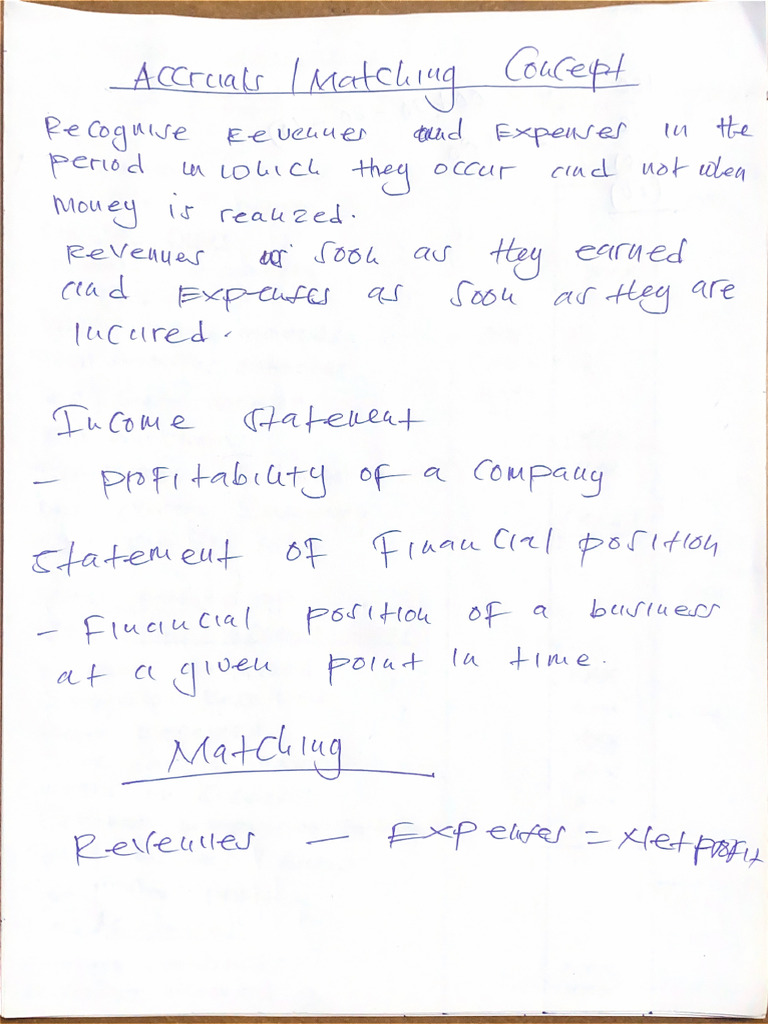 Accruals / Matching Concept
Recognise Revenues and Expenses in the
period in which they occur and not when
Money is realized.
Revenues as soon as they earned
and Expenses as soon as they are
incured.
Income statement
- profitability of a company
statement of Financial position
- Financial position of a business
at a given point in time.
Matching
Revenues — Expenses = Net profit